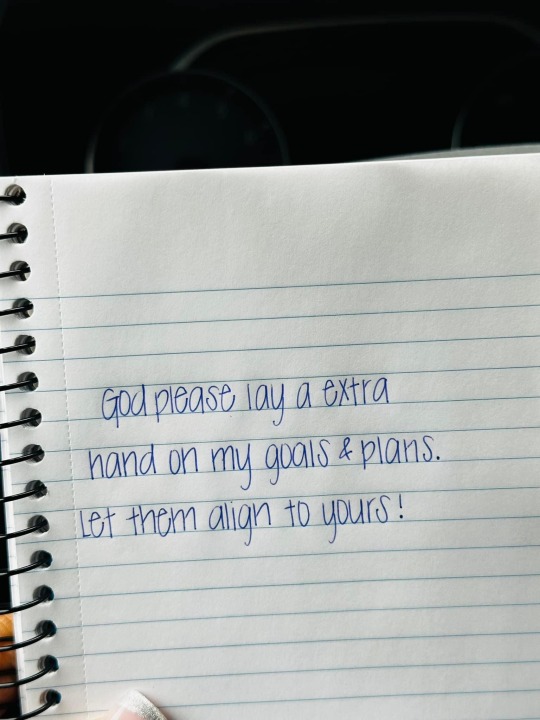 God please lay a extra
hand on my goals & plans.
Let them align to yours!